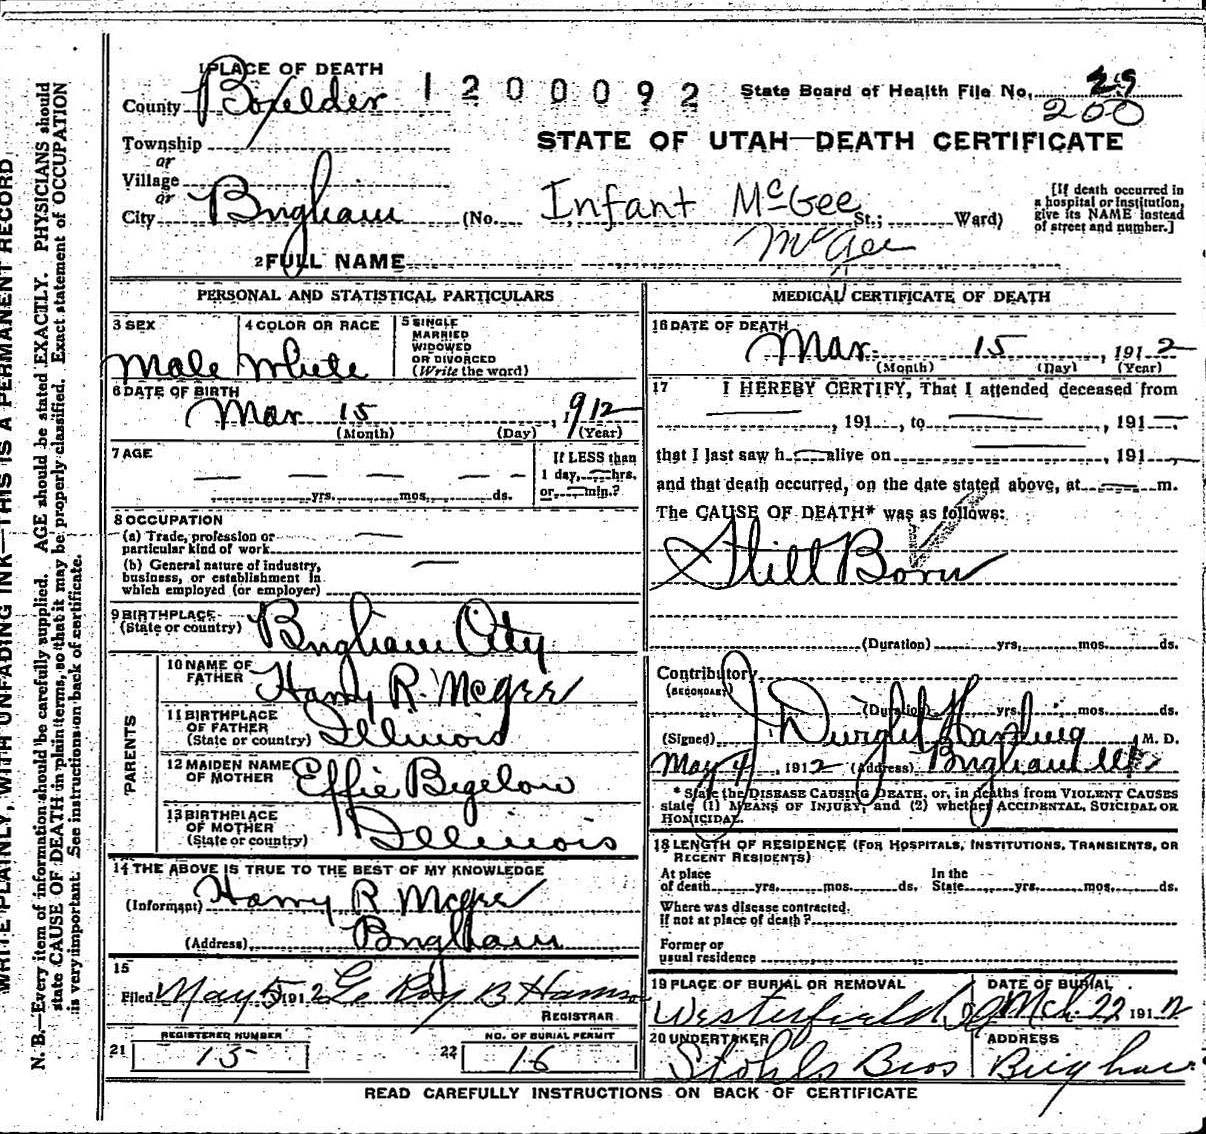 1 PLACE OF DEATH
County Boxelder
1200092
State Board of Health File No. 29
200
Township
or
Village
or
City Brigham (No. Infant McGee St.; Ward)
STATE OF UTAH—DEATH CERTIFICATE
[If death occurred in
a hospital or institution,
give its NAME instead
of street and number.]
2 FULL NAME McGee
PERSONAL AND STATISTICAL PARTICULARS
3 SEX
Male
4 COLOR OR RACE
White
5 SINGLE
MARRIED
WIDOWED
OR DIVORCED
(Write the word)
6 DATE OF BIRTH
Mar 15, 1912
(Month) (Day) (Year)
7 AGE
yrs. mos. ds.
If LESS than
1 day, hrs.
or min.?
8 OCCUPATION
(a) Trade, profession or
particular kind of work
(b) General nature of industry,
business, or establishment in
which employed (or employer)
9 BIRTHPLACE
(State or country) Brigham City
PARENTS
10 NAME OF
FATHER Harry R. McGee
11 BIRTHPLACE
OF FATHER
(State or country) Illinois
12 MAIDEN NAME
OF MOTHER Effie Bigelow
13 BIRTHPLACE
OF MOTHER
(State or country) Illinois
14 THE ABOVE IS TRUE TO THE BEST OF MY KNOWLEDGE
(Informant) Harry R McGee
(Address) Brigham
15
Filed May 5 1912 Le Roy B
REGISTRAR
REGISTERED NUMBER
21 15
NO. OF BURIAL PERMIT
22 16
MEDICAL CERTIFICATE OF DEATH
16 DATE OF DEATH
Mar. 15, 1912
(Month) (Day) (Year)
17 I HEREBY CERTIFY, That I attended deceased from
, 191 , to , 191
that I last saw h alive on , 191
and that death occurred, on the date stated above, at m.
The CAUSE OF DEATH* was as follows:
Still Born
(Duration) yrs. mos. ds.
Contributory
(SECONDARY)
(Duration) yrs. mos. ds.
(Signed) J. Dwight Harding M. D.
May 4, 1912 (Address) Brigham Ut
* State the DISEASE CAUSING DEATH, or, in deaths from VIOLENT CAUSES
state (1) MEANS OF INJURY; and (2) whether ACCIDENTAL, SUICIDAL OR
HOMICIDAL.
18 LENGTH OF RESIDENCE (FOR HOSPITALS, INSTITUTIONS, TRANSIENTS, OR
RECENT RESIDENTS)
At place
of death yrs. mos. ds.
In the
State yrs. mos. ds.
Where was disease contracted.
If not at place of death?
Former or
usual residence
19 PLACE OF BURIAL OR REMOVAL
Westerfield
DATE OF BURIAL
Mch. 22 1912
20 UNDERTAKER
Stohls Bros
ADDRESS
Brigham
READ CAREFULLY INSTRUCTIONS ON BACK OF CERTIFICATE
WRITE PLAINLY, WITH UNFADING INK—THIS IS A PERMANENT RECORD
N. B.—Every item of information should be carefully supplied. AGE should be stated EXACTLY. PHYSICIANS should
state CAUSE OF DEATH in plain terms, so that it may be properly classified. Exact statement of OCCUPATION
is very important. See instructions on back of certificate.